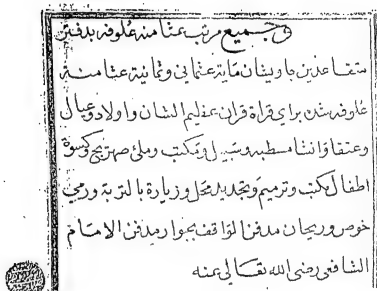 وجميع مرتب عثمامنه علوفه بدفتر
متقاعدين جاويشان مايه عثماني وثمانية عثمامنه
علوفه شدن براي قراة قران عظيم الشان واولاد وعيال
وعتقا وانشا مسطبه وسبيل ومكتب وملئ صهريج وكسوة
اطفال مكتب وترميم وتجديد محل وزيارة بالتربة ورمي
خوص وريحان مدفن الواقف بجوار مدفن الامام
الشافعي رضى الله تعالى عنه